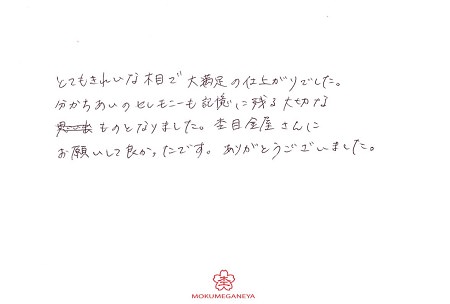 とてもきれいな木目で大満足の仕上がりでした。
分かちあいのセレモニーも記憶に残る大切な
ものとなりました。杢目金屋さんに
お願いして良かったです。ありがとうございました。
杢
MOKUMEGANEYA